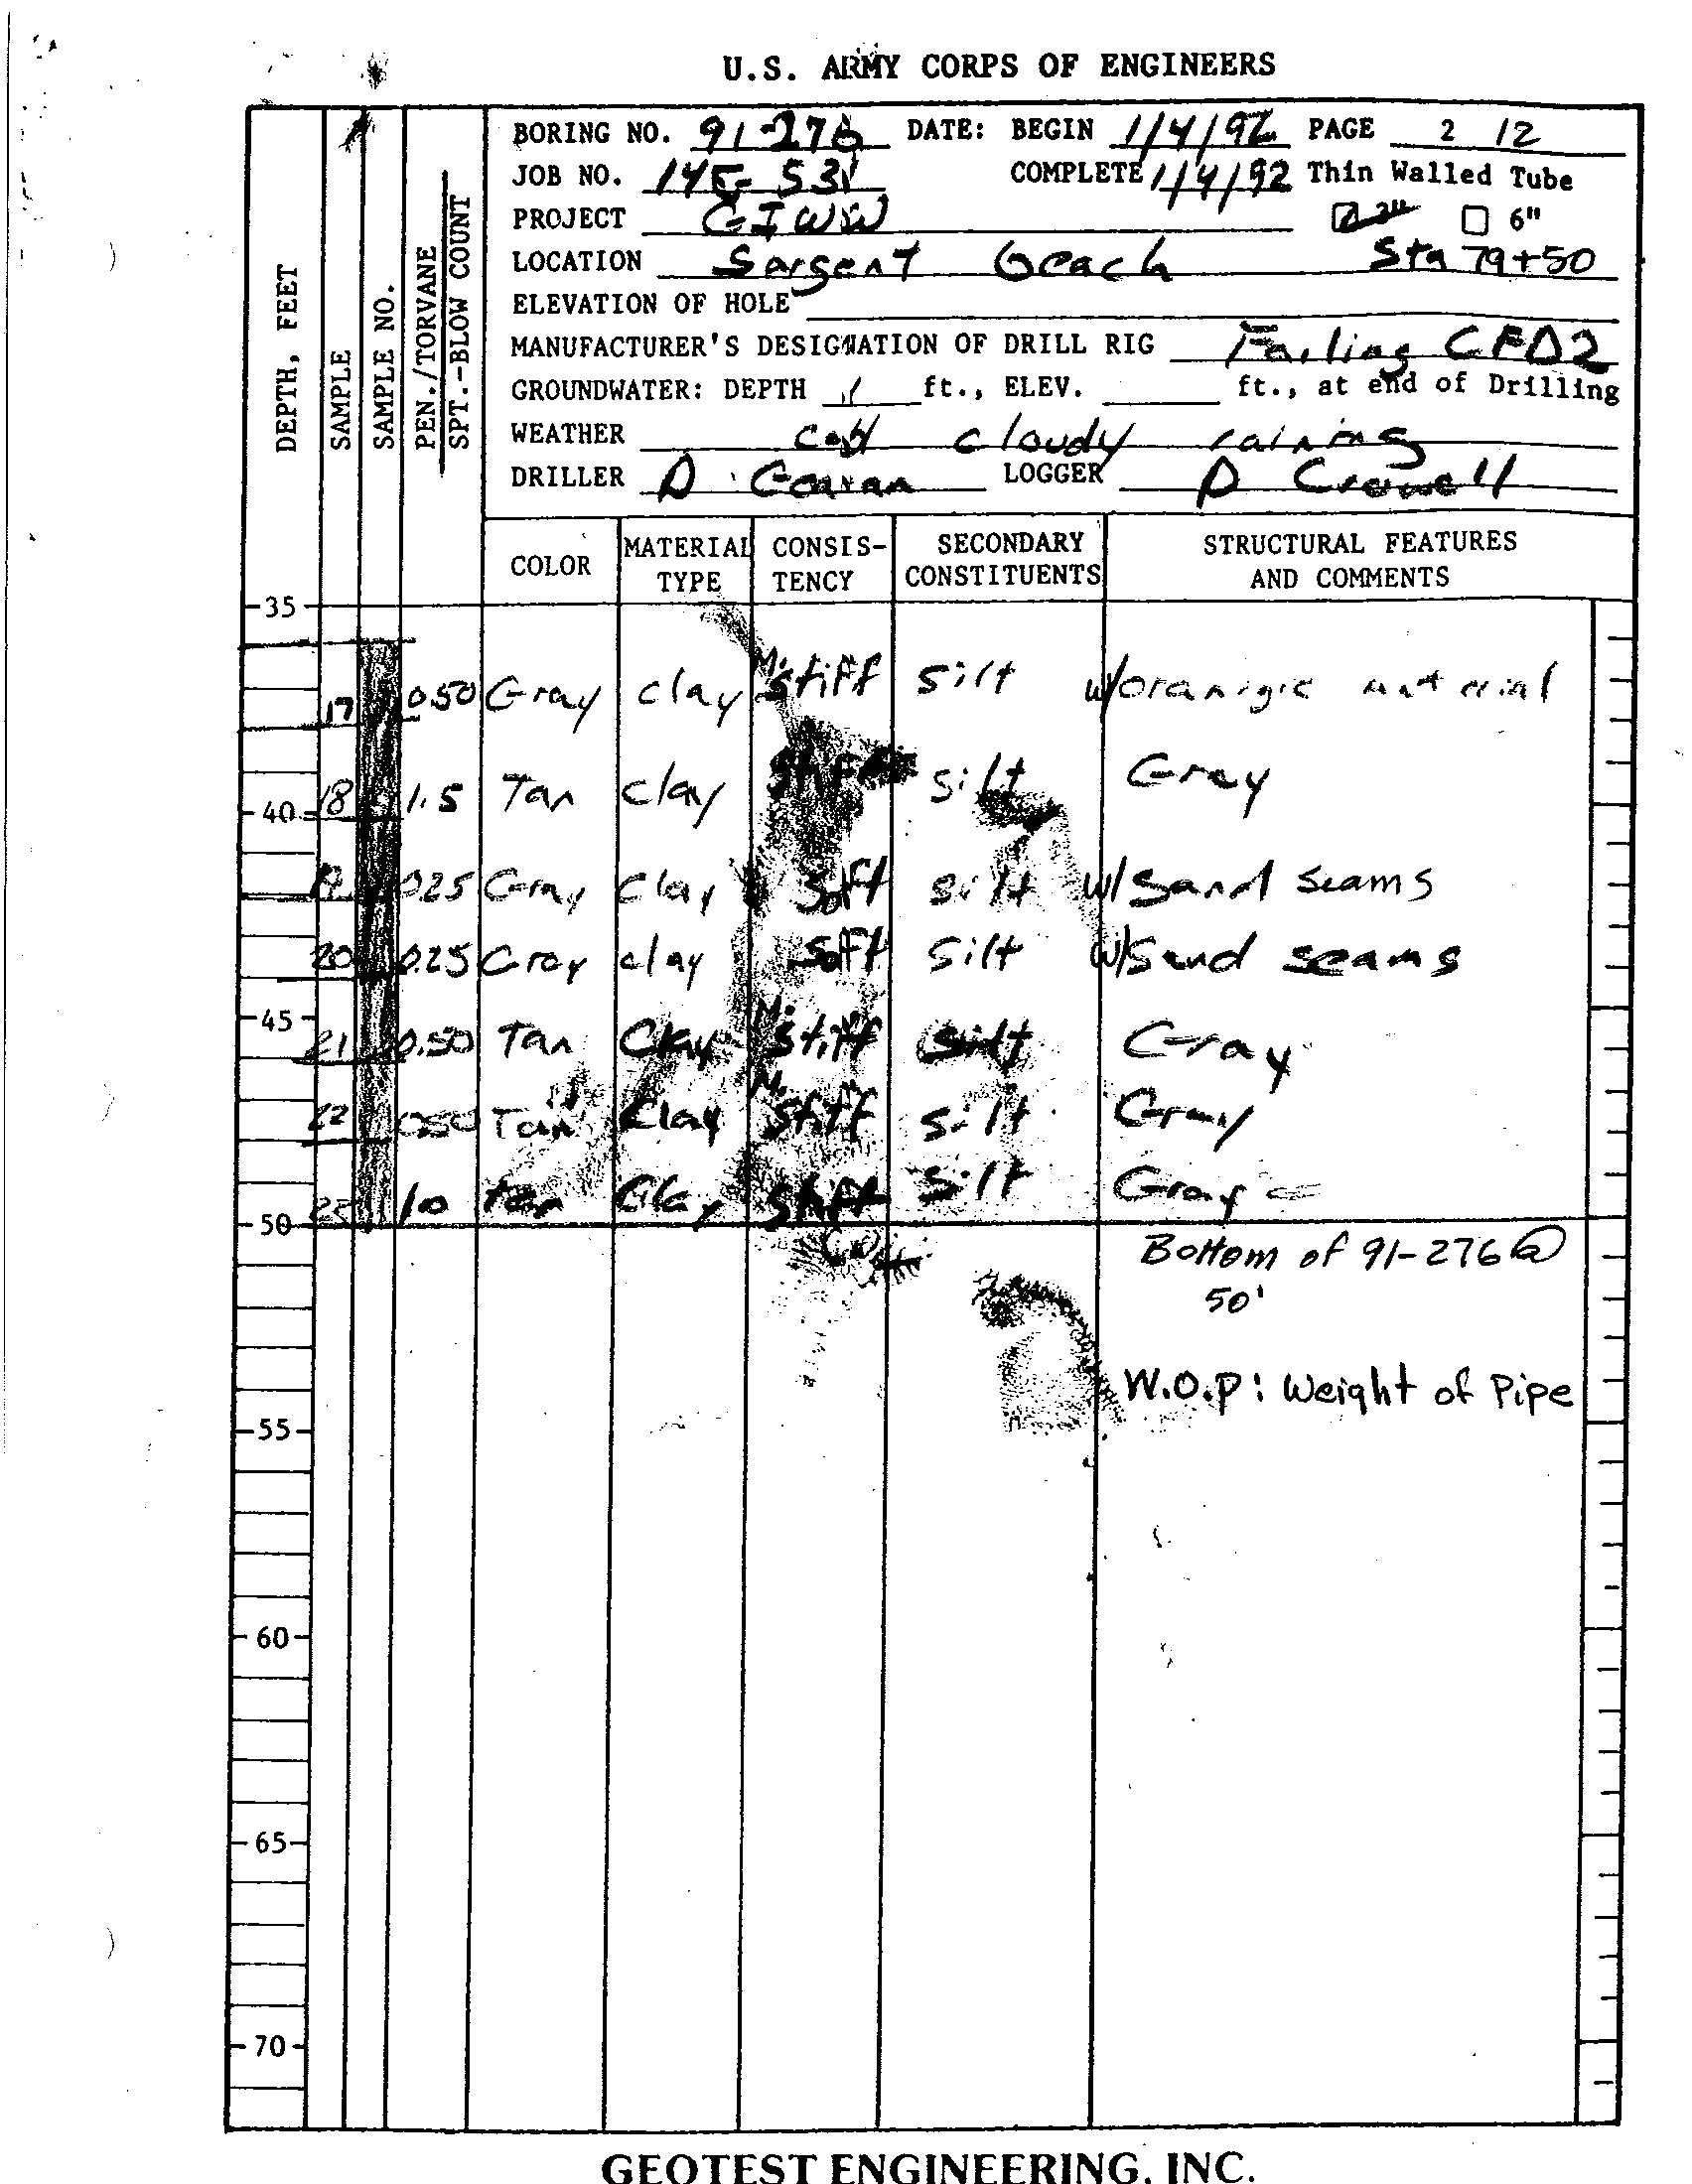 U.S. ARMY CORPS OF ENGINEERS
BORING NO. 91-276 DATE: BEGIN 1/4/92 PAGE 2 /2
JOB NO. 14E-531 COMPLETE 1/4/92 Thin Walled Tube
PROJECT GIWW 3" 6"
LOCATION Sargent Beach Sta 79+50
ELEVATION OF HOLE
MANUFACTURER'S DESIGNATION OF DRILL RIG Failing CFD2
GROUNDWATER: DEPTH ft., ELEV. ft., at end of Drilling
WEATHER cloudy raining
DRILLER D LOGGER D Crowell
DEPTH, FEET
SAMPLE
SAMPLE NO.
PEN./TORVANE
SPT.-BLOW COUNT
COLOR MATERIAL TYPE CONSIS-TENCY SECONDARY CONSTITUENTS STRUCTURAL FEATURES AND COMMENTS
35
17 0.50 Gray clay M. stiff silt w/oranigic material
18 1.5 Tan clay stiff silt Gray
40
19 0.25 Gray clay soft silt w/sand seams
20 0.25 Gray clay soft silt w/sand seams
45
21 0.50 Tan clay M. stiff silt Gray
22 0.50 Tan clay M. stiff silt Gray
1.0 tan clay stiff silt Gray
50
Bottom of 91-276 @
50'
W.O.P: Weight of Pipe
55
60
65
70
GEOTEST ENGINEERING, INC.